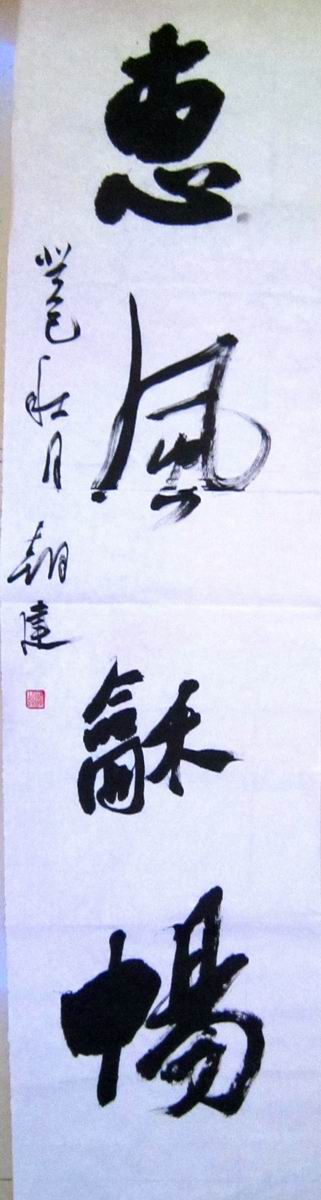 惠風龢暢
癸巳秋月 朝建